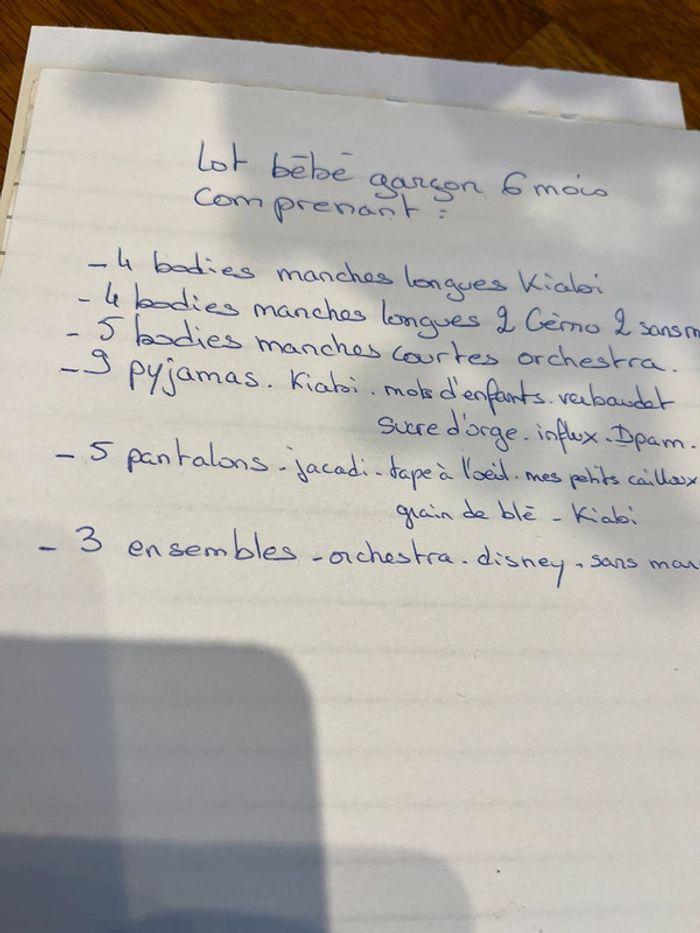 Lot bébé garçon 6 mois
comprenant :
- 4 bodies manches longues Kiabi
- 4 bodies manches longues 2 Gémo 2 sans m
- 5 bodies manches courtes orchestra.
- 9 pyjamas. Kiabi. mots d'enfants. verbaudet
sucre d'orge. influx. Dpam.
- 5 pantalons - jacadi - tape à l'oeil. mes petits cailloux
grain de blé - Kiabi
- 3 ensembles - orchestra. disney. sans mar